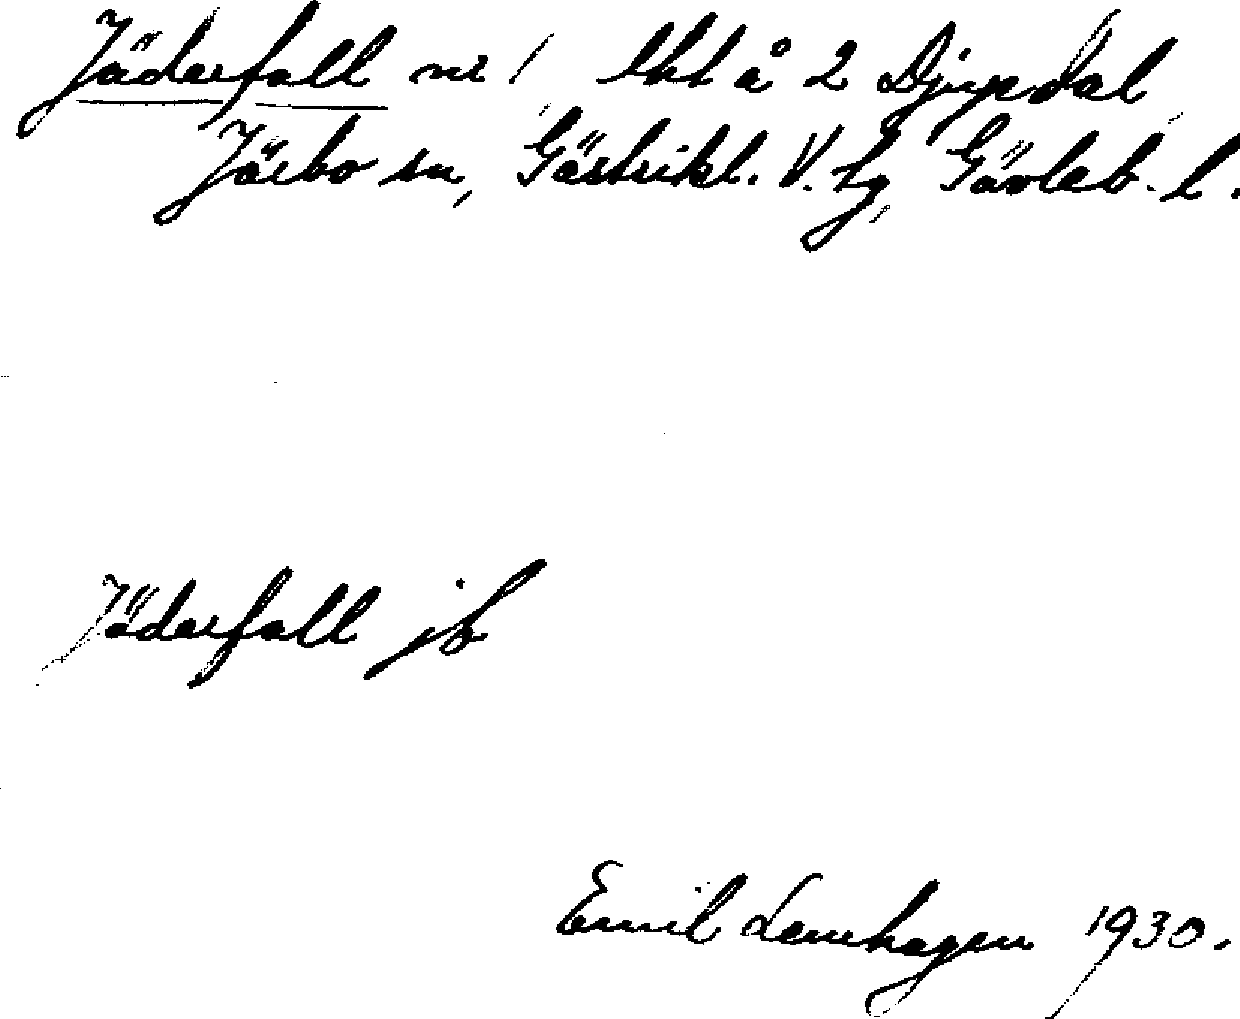 Jäderfall nr 1 lht å 2 Djupdal
Järbo sn, Gästrikl. V. tg, Gävleb. l.
Jäderfall jb
Emil Lenhagen 1930.